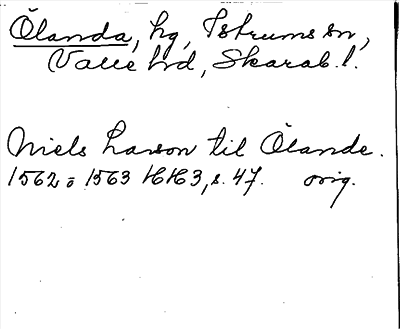 Ölanda, hg, Istrums sn,
Valle hrd, Skarab. l.
Niels Larson til Ölande.
1562 o 1563 HH3, s. 47. orig.